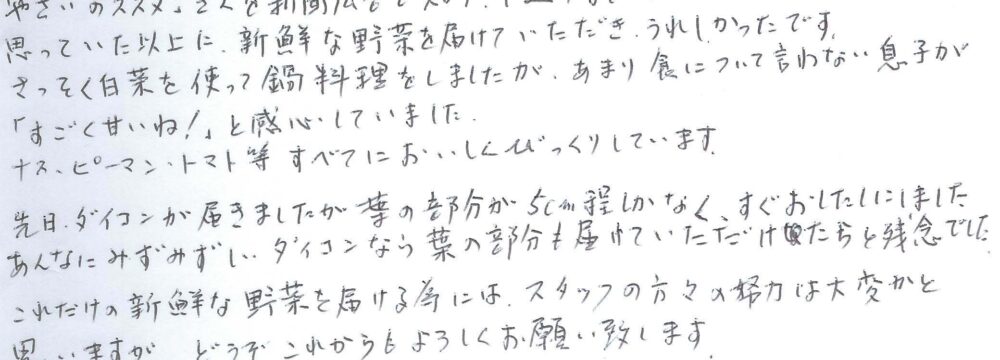 やさいのススメ」さんを新聞広
思っていた以上に、新鮮な野菜を届けていただき、うれしかったです。
さっそく白菜を使って鍋料理をしましたが、あまり食について言わない息子が
「すごく甘いね!」と感心していました。
ナス、ピーマン・トマト等すべてにおいしくびっくりしています。
先日、ダイコンが届きましたが葉の部分が5cm程しかなく、すぐおしたしにしました
あんなにみずみずしい、ダイコンなら葉の部分も届けていただけたらと残念でした
これだけの新鮮な野菜を届ける為には、スタッフの方々の努力は大変かと
思いますが、どうぞこれからもよろしくお願い致します。